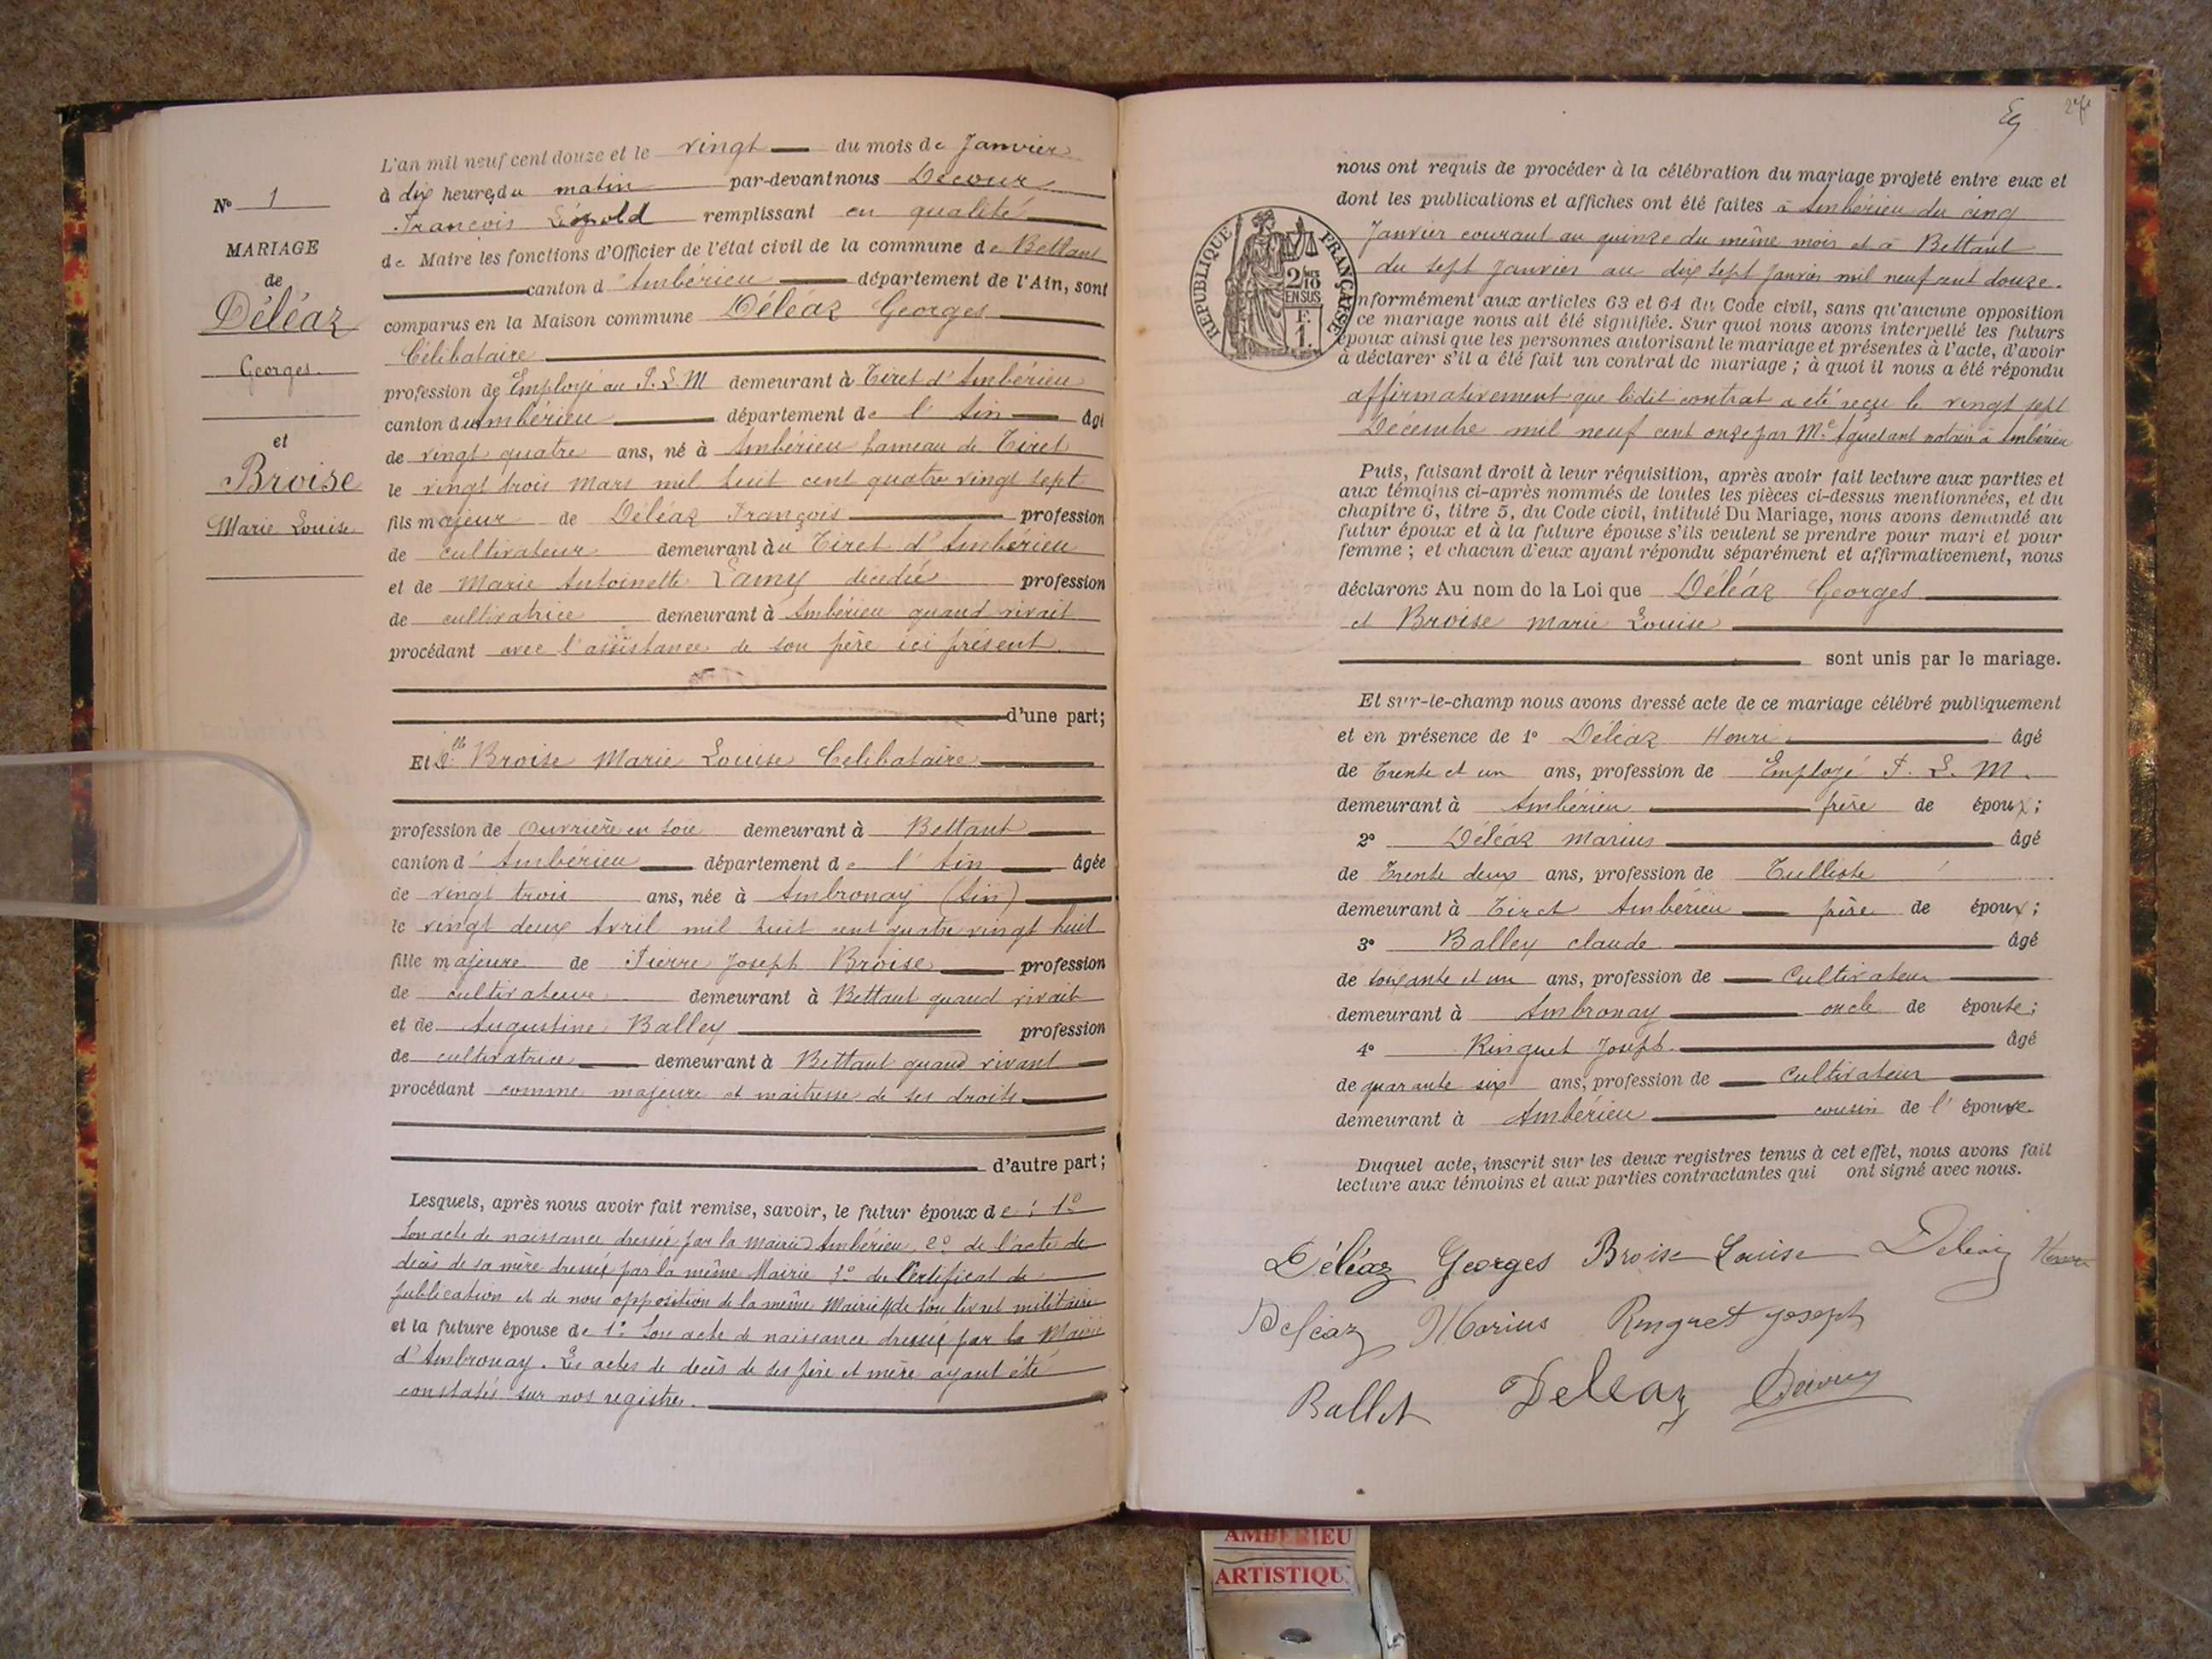 N° 1
MARIAGE
de
Déléaz
Georges
et
Broise
Marie Louise
L'an mil neuf cent douze et le vingt du mois de Janvier
à dix heures du matin par-devant nous Decour
François Léopold remplissant en qualité
de Maire les fonctions d'Officier de l'état civil de la commune de Bettant
canton d'Ambérieu département de l'Ain, sont
comparus en la Maison commune Déléaz Georges
Célibataire
profession de Employé au P. L. M demeurant à Tiret d'Ambérieu
canton d'Ambérieu département de l'Ain âgé
de vingt quatre ans, né à Ambérieu hameau de Tiret
le vingt trois Mars mil huit cent quatre vingt sept
fils majeur de Déléaz François profession
de cultivateur demeurant au Tiret d'Ambérieu
et de Marie Antoinette Lamy décédée profession
de cultivatrice demeurant à Ambérieu quand vivait
procédant avec l'assistance de son père ici présent
d'une part;
Et Dlle Broise Marie Louise Celibataire
profession de Ouvrière en soie demeurant à Bettant
canton d'Ambérieu département de l'Ain âgée
de vingt trois ans, née à Ambronay (Ain)
le vingt deux Avril mil huit cent quatre vingt huit
fille majeure de Pierre Joseph Broise profession
de cultivateur demeurant à Bettant quand vivait
et de Augustine Balley profession
de cultivatrice demeurant à Bettant quand vivant
procédant comme majeure et maitresse de ses droits
d'autre part;
Lesquels, après nous avoir fait remise, savoir, le futur époux de : 1°
Son acte de naissance dressé par la Mairie d'Ambérieu, 2° de l'acte de
décès de sa mère dressé par la même Mairie 3° du Certificat de
publication et de non opposition de la même Mairie 4° de son livret militaire
et la future épouse de 1° Son acte de naissance dressé par la Mairie
d'Ambronay. Les actes de decès de ses père et mère ayant été
constatés sur nos registres.
nous ont requis de procéder à la célébration du mariage projeté entre eux et
dont les publications et affiches ont été faites à Ambérieu du cinq
Janvier courant au quinze du même mois et à Bettant
du sept Janvier au dix sept Janvier mil neuf cent douze.
RÉPUBLIQUE FRANÇAISE
2/10
EN SUS
F.
1.
nformément aux articles 63 et 64 du Code civil, sans qu'aucune opposition
ce mariage nous ait été signifiée. Sur quoi nous avons interpellé les futurs
époux ainsi que les personnes autorisant le mariage et présentes à l'acte, d'avoir
à déclarer s'il a été fait un contrat de mariage ; à quoi il nous a été répondu
affirmativement que ledit contrat a été reçu le vingt sept
Décembre mil neuf cent onze par Me notaire à Ambérieu
Puis, faisant droit à leur réquisition, après avoir fait lecture aux parties et
aux témoins ci-après nommés de toutes les pièces ci-dessus mentionnées, et du
chapitre 6, titre 5, du Code civil, intitulé Du Mariage, nous avons demandé au
futur époux et à la future épouse s'ils veulent se prendre pour mari et pour
femme ; et chacun d'eux ayant répondu séparément et affirmativement, nous
déclarons Au nom de la Loi que Déléaz Georges
et Broise Marie Louise
sont unis par le mariage.
Et sur-le-champ nous avons dressé acte de ce mariage célébré publiquement
et en présence de 1° Déléaz Henri âgé
de Trente et un ans, profession de Employé P. L. M.
demeurant à Ambérieu frère de époux;
2° Déléaz Marius âgé
de Trente deux ans, profession de Tulliste
demeurant à Tiret Ambérieu frère de époux;
3° Balley claude âgé
de soixante et un ans, profession de Cultivateur
demeurant à Ambronay oncle de épouse;
4° Ringuet Joseph âgé
de quarante six ans, profession de Cultivateur
demeurant à Ambérieu cousin de l'épouse.
Duquel acte, inscrit sur les deux registres tenus à cet effet, nous avons fait
lecture aux témoins et aux parties contractantes qui ont signé avec nous.
Déléaz Georges Broise Louise Deléaz Henri
Deléaz Marius Ringuet Joseph
Ballet Deleaz Decour
AMBERIEU
ARTISTIQU